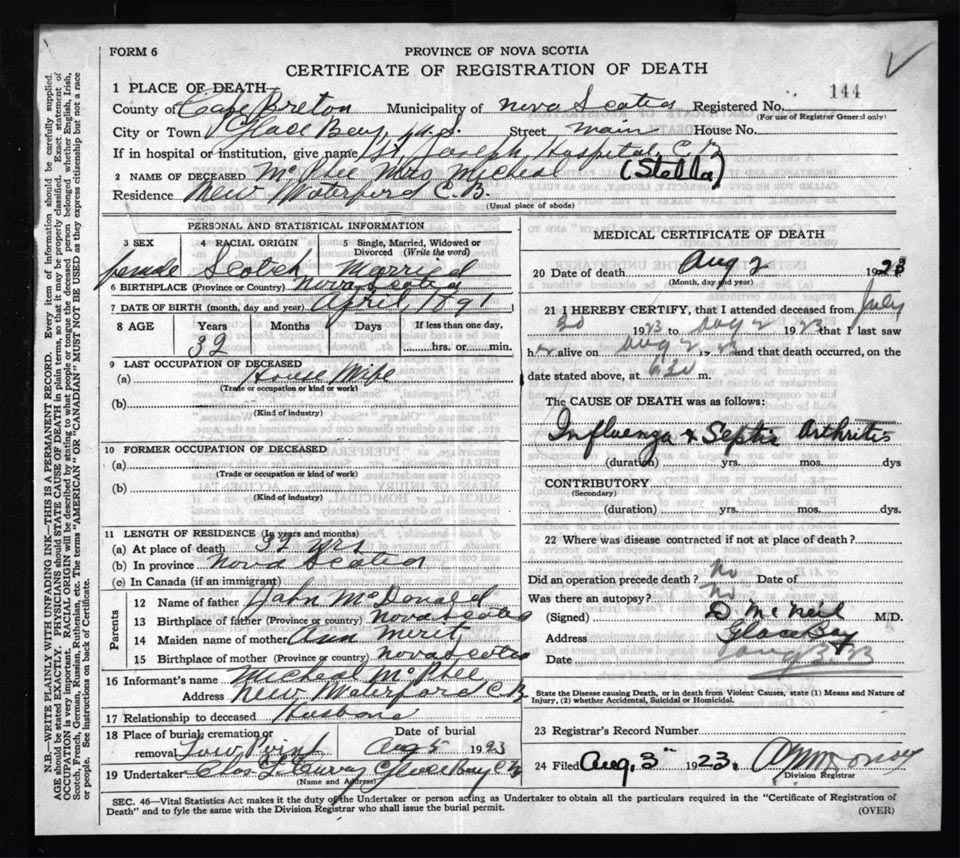 FORM 6
PROVINCE OF NOVA SCOTIA
CERTIFICATE OF REGISTRATION OF DEATH
144
1 PLACE OF DEATH
County of Cape Breton Municipality of Nova Scotia Registered No.
(For use of Registrar General only)
City or Town Glace Bay, N.S. Street main House No.
If in hospital or institution, give name St. Joseph Hospital C.B
2 NAME OF DECEASED McPhee Mrs Micheal (Stella)
Residence New Waterford C.B.
(Usual place of abode)
PERSONAL AND STATISTICAL INFORMATION
3 SEX 4 RACIAL ORIGIN 5 Single, Married, Widowed or Divorced (Write the word)
female Scotch Married
6 BIRTHPLACE (Province or Country) Nova Scotia
7 DATE OF BIRTH (month, day and year) April 1891
8 AGE Years Months Days If less than one day,
32 hrs. or min.
9 LAST OCCUPATION OF DECEASED
(a) House Wife
(Trade or occupation or kind of work)
(b)
(Kind of industry)
10 FORMER OCCUPATION OF DECEASED
(a)
(Trade or occupation or kind of work)
(b)
(Kind of industry)
11 LENGTH OF RESIDENCE (In years and months)
(a) At place of death 32 yrs
(b) In province Nova Scotia
(c) In Canada (if an immigrant)
Parents
12 Name of father John McDonald
13 Birthplace of father (Province or country) Nova Scotia
14 Maiden name of mother Ann Merit
15 Birthplace of mother (Province or country) Nova Scotia
16 Informant's name Micheal McPhee
Address New Waterford C.B
17 Relationship to deceased Husband
18 Place of burial, cremation or removal Low Point Date of burial Aug 5 1923
19 Undertaker Curry Glace Bay C.B
(Name and Address)
MEDICAL CERTIFICATE OF DEATH
20 Date of death Aug 2 1923
(Month, day and year)
21 I HEREBY CERTIFY, that I attended deceased from July
20 1923 to Aug 2 1923 that I last saw
her alive on Aug 2 1923 and that death occurred, on the
date stated above, at 630 m.
The CAUSE OF DEATH was as follows:
Influenza & Septic Arthritis
(duration) yrs. mos. dys
CONTRIBUTORY
(Secondary)
(duration) yrs. mos. dys.
22 Where was disease contracted if not at place of death?
Did an operation precede death? No Date of
Was there an autopsy? No
(Signed) D. McNeil M.D.
Address Glace Bay
Date Aug 3/23
State the Disease causing Death, or in death from Violent Causes, state (1) Means and Nature of Injury, (2) whether Accidental, Suicidal or Homicidal.
23 Registrar's Record Number
24 Filed Aug. 3rd 1923.
Division Registrar
SEC. 46—Vital Statistics Act makes it the duty of the Undertaker or person acting as Undertaker to obtain all the particulars required in the "Certificate of Registration of
Death" and to fyle the same with the Division Registrar who shall issue the burial permit.
(OVER)
N.B.—WRITE PLAINLY WITH UNFADING INK—THIS IS A PERMANENT RECORD. Every item of information should be carefully supplied.
AGE should be stated EXACTLY. PHYSICIANS should STATE CAUSE OF DEATH in plain terms, so that it may be properly classified. Exact statement of
OCCUPATION is very important. RACIAL ORIGIN will be described by stating to what people or tongue the deceased person belonged whether English, Irish,
Scotch, French, German, Russian, Ruthenian, etc. The terms "AMERICAN" or "CANADIAN" MUST NOT BE USED as they express citizenship but not a race
or people. See instructions on back of Certificate.